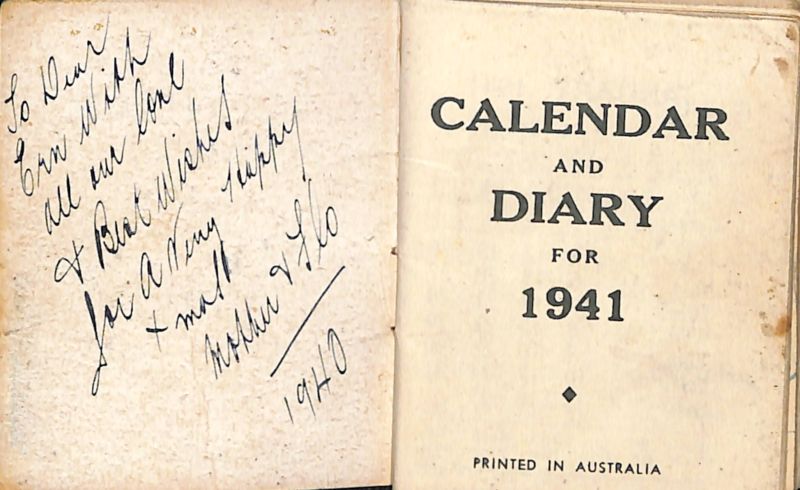 To Dear
Ern With
all our love
& Best Wishes
for A Very Happy
+ mas
Mother & Flo
1940
CALENDAR
AND
DIARY
FOR
1941
PRINTED IN AUSTRALIA